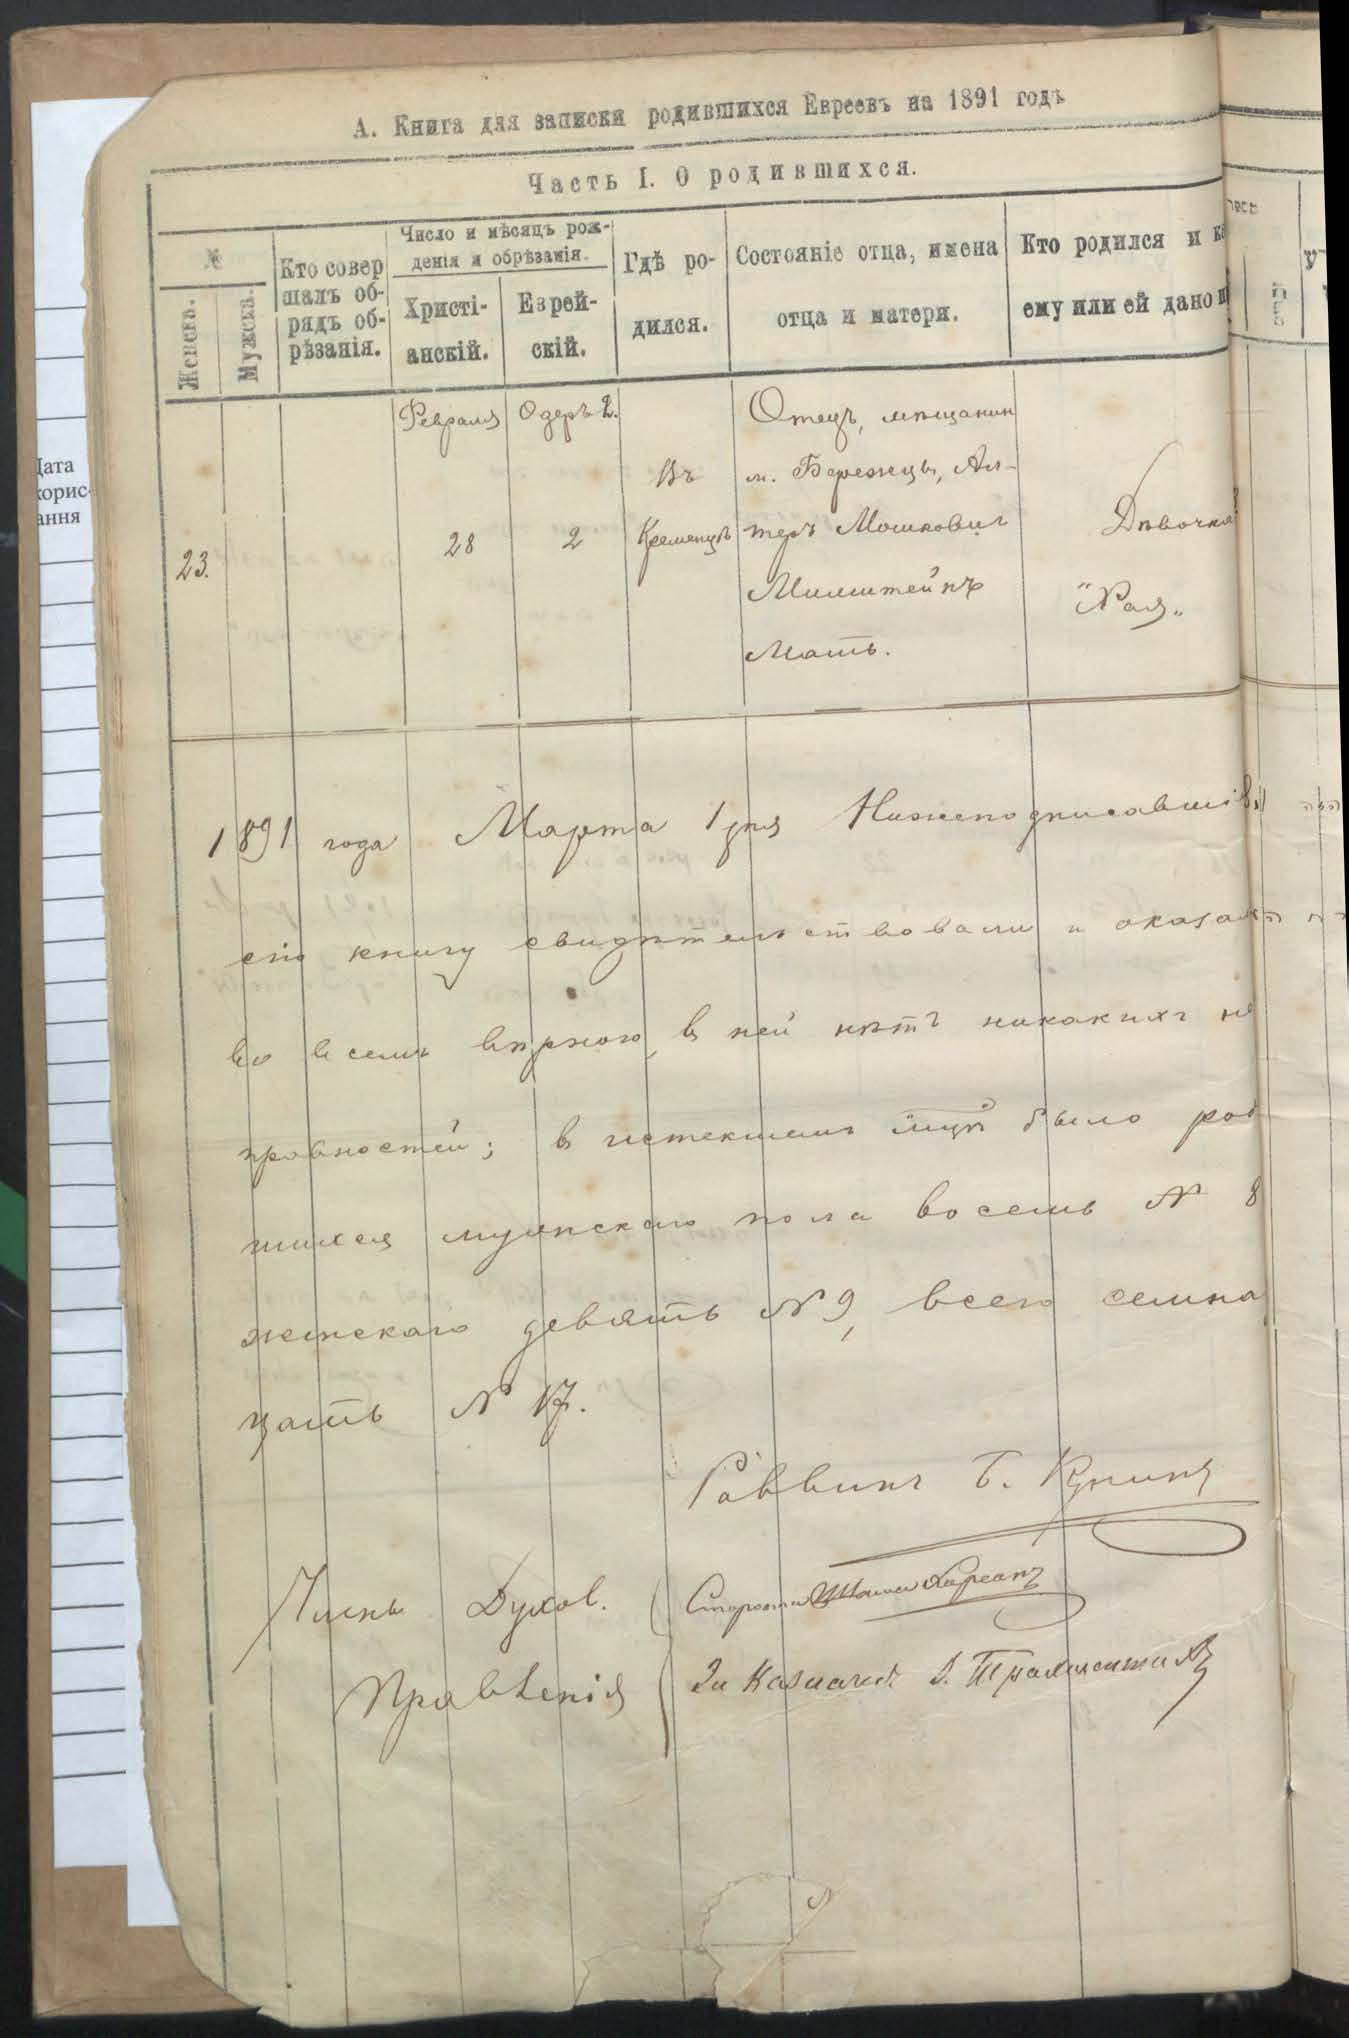 А. Книга для записки родившихся Евреевъ на 1891 годъ
Часть I. О родившихся.
№
Женска.
Мужска.
Кто совер
шалъ об-
рядъ об-
рѣзанія.
Число и мѣсяцъ рож-
денія и обрѣзанія.
Христі-
анскій.
Еврей-
скій.
Гдѣ ро-
дился.
Состояніе отца, имена
отца и матери.
Кто родился и ка
ему или ей дано и
23.
Февраля
28
Одеръ 2.
2
Въ
Кременцѣ
Отецъ, мѣщанин
м. Бережецъ, Ал-
теръ Мошкович
Милштейнъ
Мать.
Дѣвочка
"Хая"
1891 года Марта 1 дня Нижеподписавшіе
сію книгу свидѣтельствовали и оказал
во всемъ вѣрною, в ней нѣтъ никакихъ не
правностей; в истекшемъ мцѣ было род
шихся мужескаго пола восемь № 8
женскаго девять № 9, всего семна
цать № 17.
Раввинъ Б. Кунинъ
Члены Духов.
Правленія
Староста
За Казначея
Дата
корис-
ання